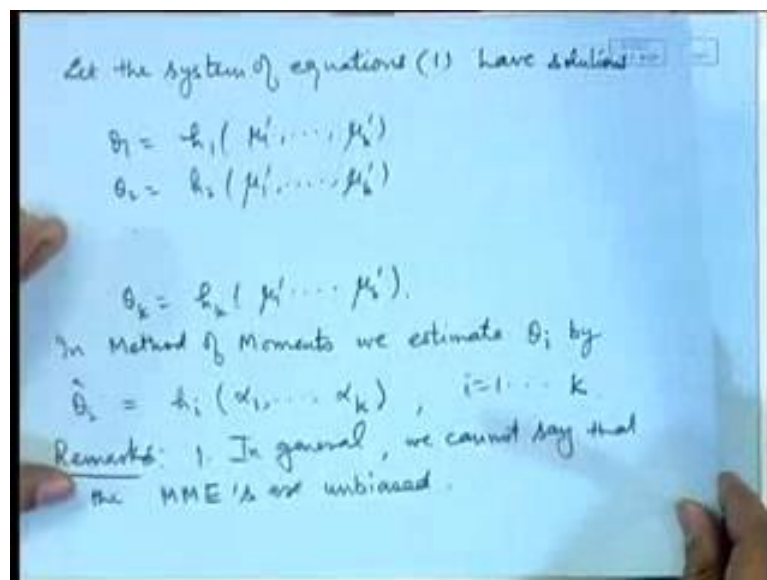 Let the system of equations (1) have solutions
θ₁ = h₁( μ₁', ..., μₖ')
θ₂ = h₂ (μ₁', ....., μₖ')
θₖ = hₖ ( μ₁' .... μₖ').
In Method of Moments we estimate θᵢ by
θ̂ᵢ = hᵢ (α₁, .... αₖ) , i=1... k
Remarks: 1. In general, we cannot say that
the MME's are unbiased.